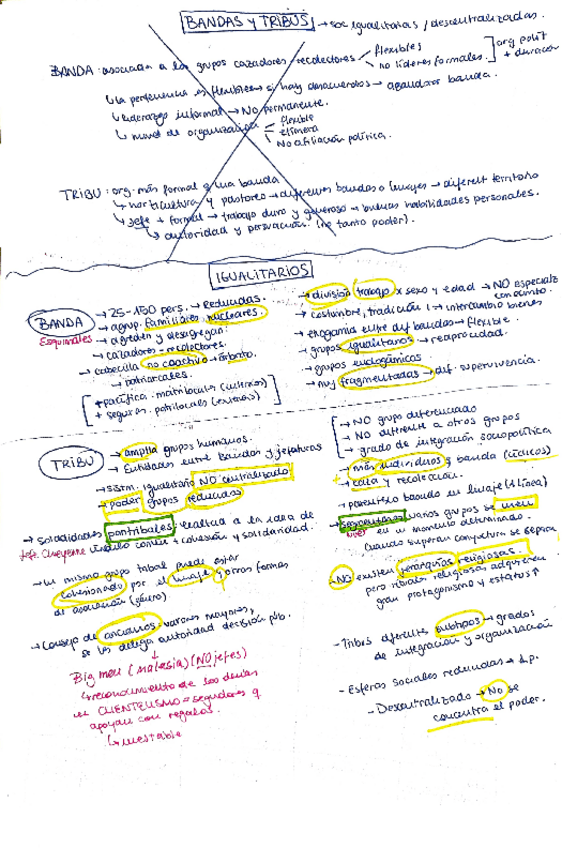 BANDAS Y TRIBUS → soc igualitarias / descentralizadas.
BANDA: asociación a los grupos cazadores / recolectores
flexibles
no líderes formales.
org polít
+ duración
↳ la pertenencia es flexible → si hay desacuerdos → abandonar banda.
↳ liderazgo informal → No permanente.
↳ nivel de organización
flexible
efímera
No afiliación política.
TRIBU: org. más formal q una banda
↳ horticultura y pastoreo → diferentes bandas o linajes → diferent territorio
↳ Jefe + formal → trabajo duro y generoso → buenas habilidades personales.
↳ autoridad y persuación. (no tanto poder).
IGUALITARIOS
BANDA
Esquimales
→ 25-150 pers. → Reducidas.
→ agrup. familiares nucleares.
→ agreden y desagregan.
→ cazadores - recolectores.
→ cabecilla no coactivo →
→ patriarcales.
+ pacífica - matrilocales
+ seguras. patrilocales
→ división trabajo x sexo y edad → NO especializ
conocimto.
→ costumbre, tradición → intercambio bienes
→ exogamia entre dif bandas → flexible.
→ grupos igualitarios → reciprocidad.
→ grupos
→ muy fragmentadas → dif. supervivencia.
TRIBU
→ amplia grupos humanos.
→ Entidades entre bandas y jefaturas
→ sistm. igualitario NO centralizado
→ poder grupos reducidos
→ solidaridades pantribales → realidad a la idea de
Jefe. Cheyenne vínculo común + cohesión y solidaridad.
→ un mismo grupo tribal puede estar
cohesionado por el linaje y otras formas
de asociación (género)
→ Consejo de ancianos: varones mayores,
se les delega autoridad decisión púb.
↓
Big men (malasia) (NO jefes)
↳ reconocimiento de los demás
en CLIENTELISMO = seguidores q
apoyan con regalos.
↳ inestable
→ NO grupo diferenciado
→ NO diferente a otros grupos
→ grado de integración sociopolítica
→ más individuos q banda
→ caza y recolección.
→ parentesco basado en linaje (1 línea)
→ segmentarios: varios grupos se unen
en un momento determinado.
Cuando superan coyuntura se separan
→ NO existen jerarquías religiosas.
pero líderes religiosos adquieren
gran protagonismo y estatus ↑
- Tribus diferentes subtipos → grados
de integración y organización
- Esferas sociales reducidas →
- Descentralizado → No se
concentra el poder.